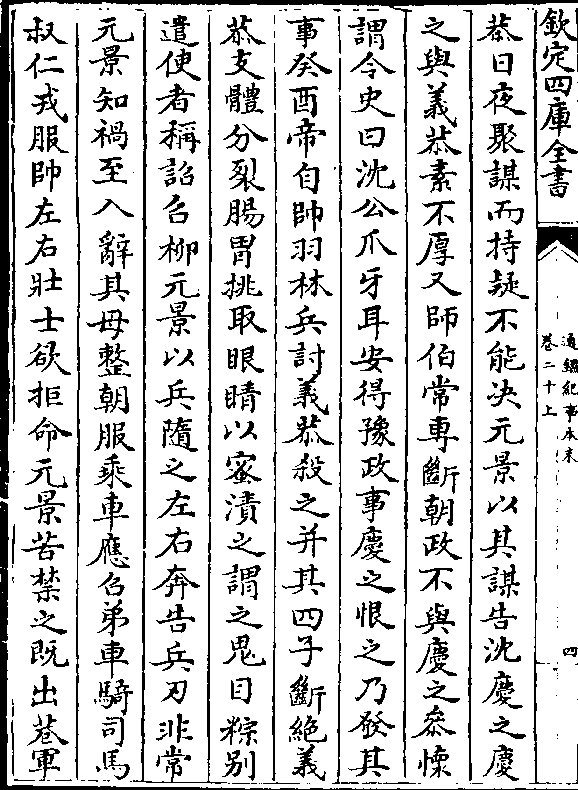 欽定四庫全書
通鑑紀事本末
卷二十上
四
恭日夜聚謀而持疑不能決元景以其謀告沈慶之慶
之與義恭素不厚又師伯常專斷朝政不與慶之參懷
謂令史曰沈公爪牙耳安得豫政事慶之恨之乃發其
事癸酉帝自帥羽林兵討義恭殺之并其四子斷絶義
恭支體分裂腸胃挑取眼睛以蜜漬之謂之鬼目粽别
遣使者稱詔召柳元景以兵隨之左右奔告兵刃非常
元景知禍至入辭其母整朝服乘車應召弟車騎司馬
叔仁戎服帥左右壯士欲拒命元景苦禁之既出巷軍